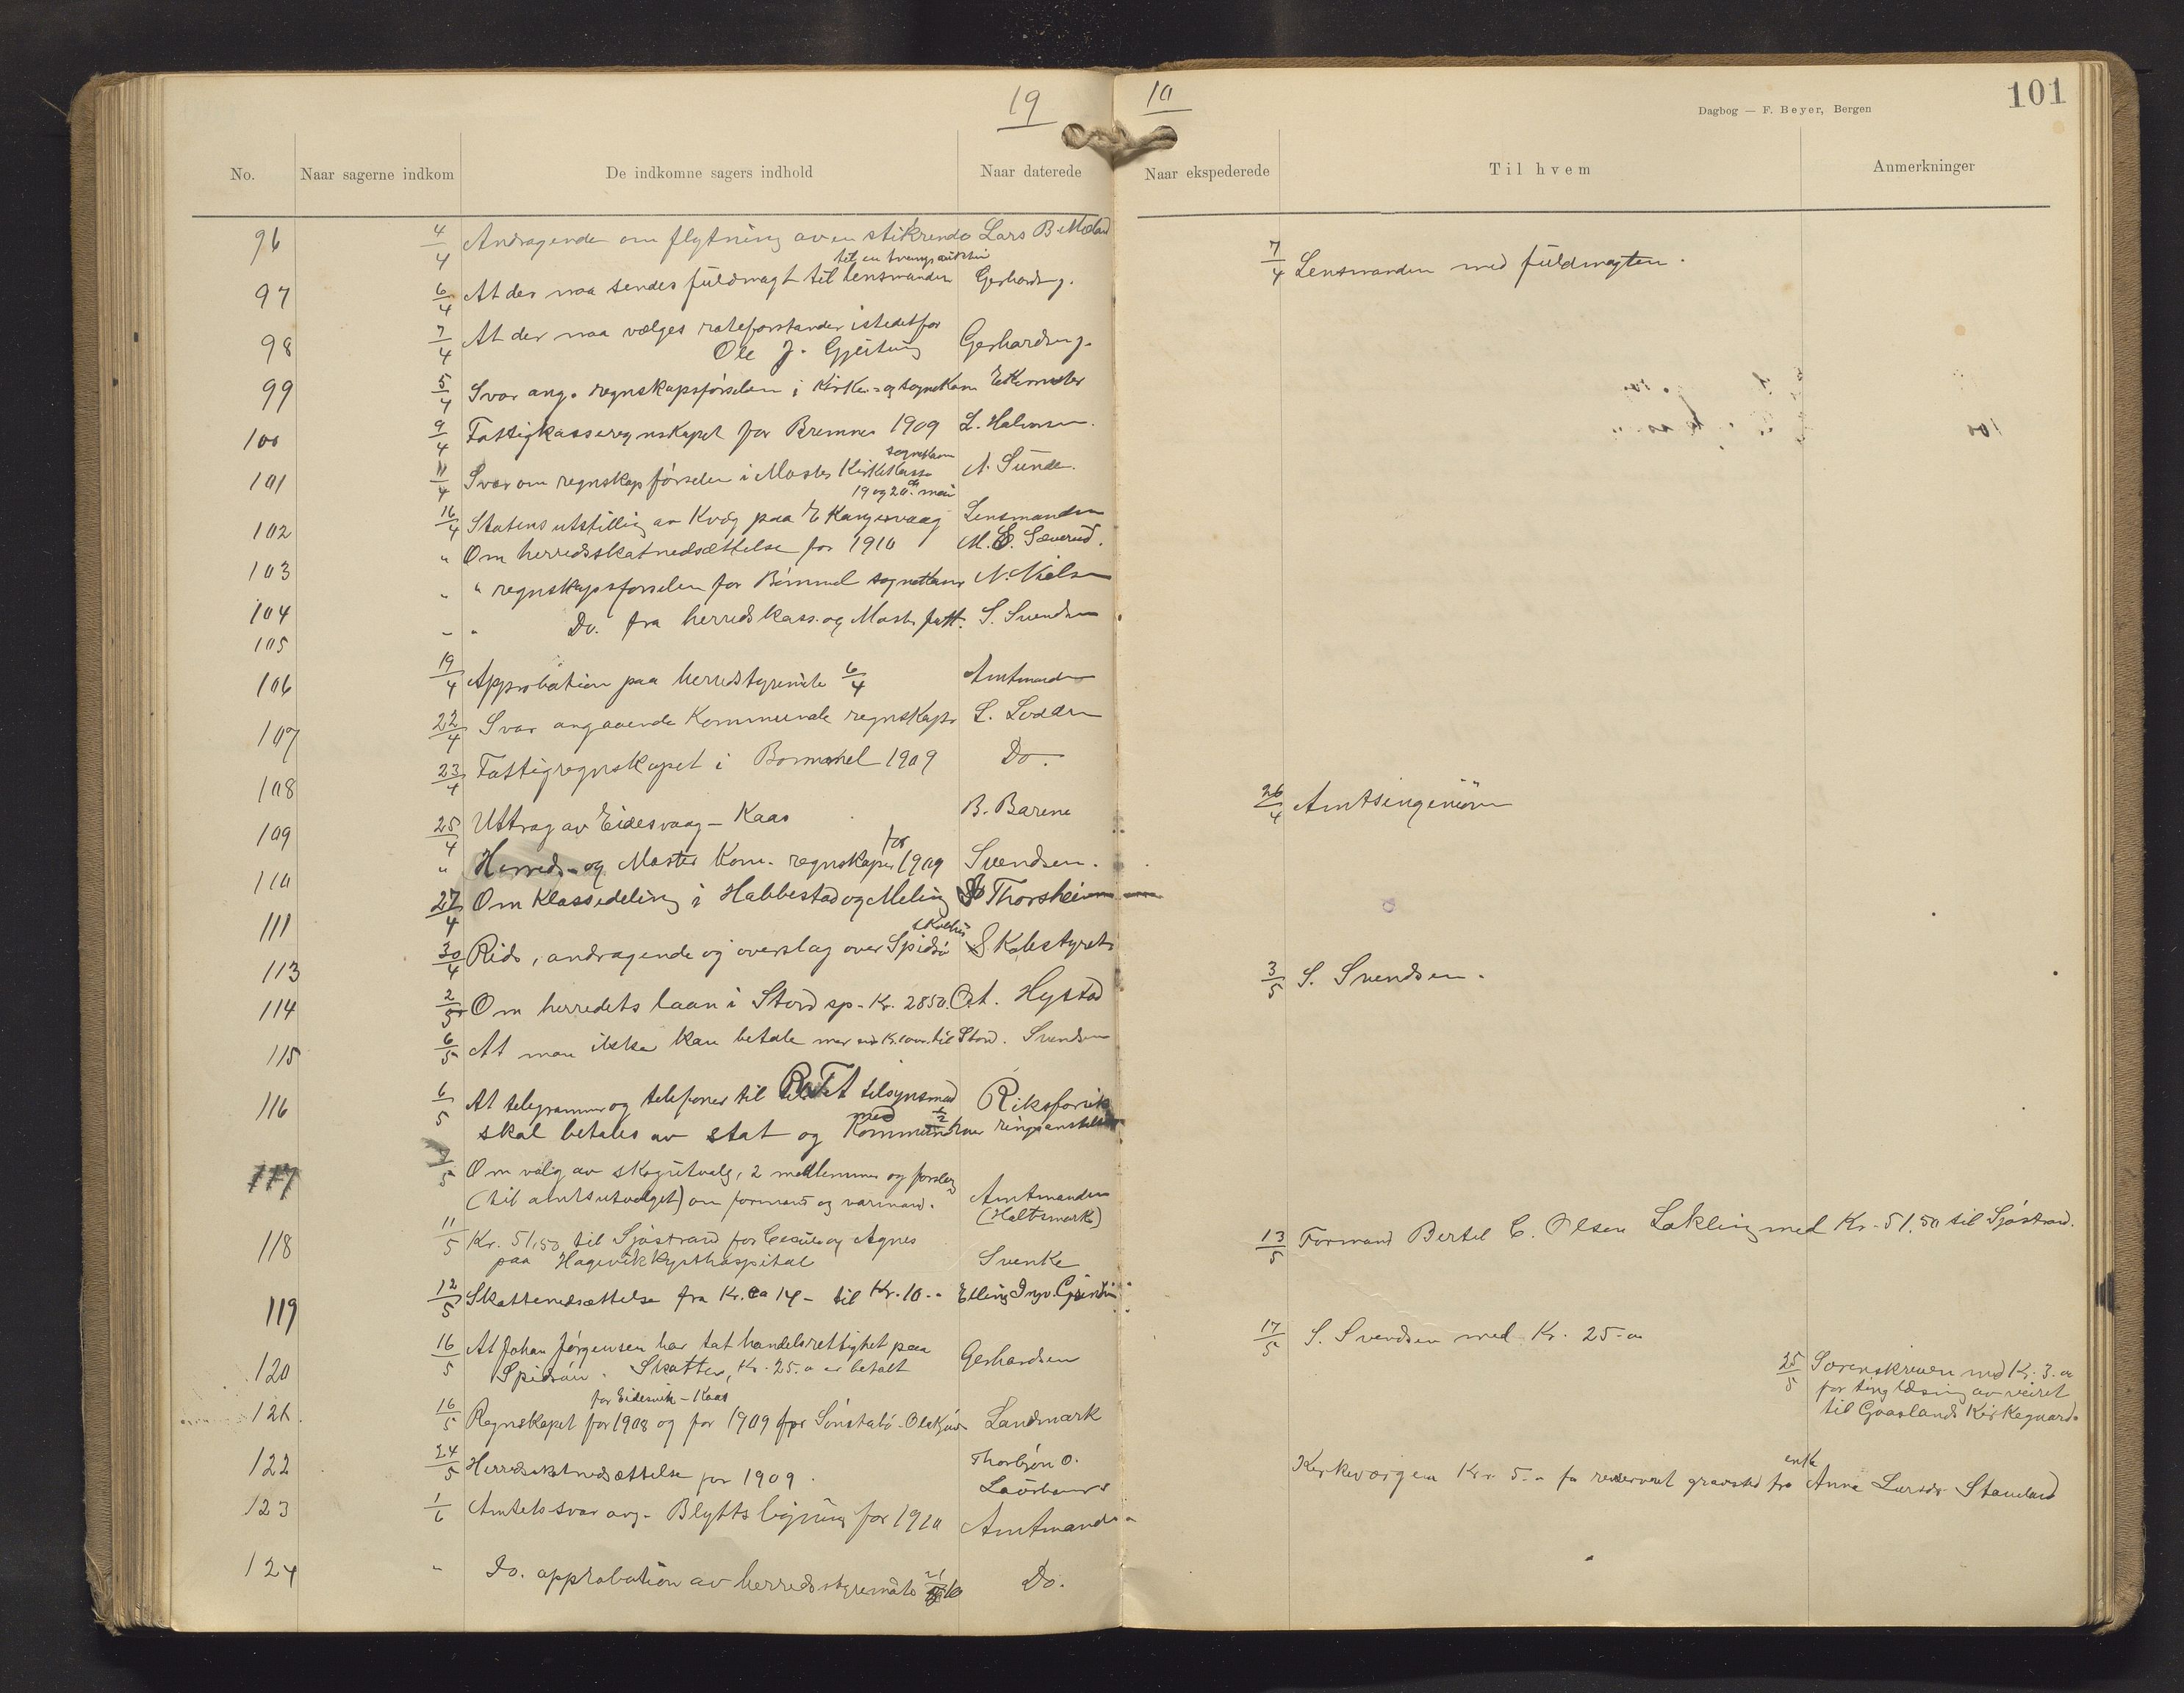 19 10
Dagbog — F. Beyer, Bergen
101
No. Naar sagerne indkom De indkomne sagers indhold Naar daterede Naar ekspederede Til hvem Anmerkninger
96 4/4 Andragende om flytning av en stikrende Lars B
til en tvangsauktion
97 6/4 At der maa sendes fuldmagt til lensmanden Gerhards.
7/4 Lensmanden med fuldmagten.
98 7/4 At der maa vælges roteforstander istedetfor
Ole J. Gjeitung Gerhards.
99 5/4 Svar ang. regnskapsførselen i Kirke- og sognekasse
100 9/4 Fattigkasseregnskapet for Bremnes 1909 L. Halvorsen.
sognekasse
101 11/4 Svar om regnskapsførselen i Moster Kirkekasse N. Sunde.
19 og 20de mai
102 16/4 Statens utstilling av Kvæg paa Lensmanden
103 " Om herredsskatnedsættelse for 1910 M. E. Sæverud.
104 " " regnskapsførselen for Bømmel sognekasse N. Nielsen
105 " " Do. fra herredskass. og Moster fatt. S. Svendsen
106 19/4 Approbation paa herredstyremøte 6/4 Amtmanden
107 22/4 Svar angaaende Kommunale regnskaper L. Lodden
108 23/4 Fattigregnskapet i Bømmel 1909 Do.
109 25/4 Uttrag av Eidesvaag - Kaas B. Barene
26/4 Amtsingeniøren
for
110 " Herreds- og Moster Kom. regnskaper 1909 Svendsen.
111 27/4 Om Klassedeling i Habbestad og Meling Thorsheim
skolehus
113 30/4 Rids, andragende og overslag over Spidsø Skolestyret
3/5 S. Svendsen.
114 2/5 Om herredets laan i Stord sp. Kr. 2850. Ost. Hystad
115 6/5 At man ikke kan betale mer end Kr. til Stord. Svendsen
116 6/5 At telegrammer og telefoner til tilsynsmænd Riksforsik
skal betales av stat og Kommune med 1/2 hver ringsanstalten
117 7/5 Om valg av skogutvalg, 2 medlemmer og forslag
(til amtsutvalget) om formand og varmand. Amtmanden
(Holtsmark)
118 11/5 Kr. 51,50 til Sjøstrand for Cecilie og Agnes
paa Hagevik kysthospital Svenke
13/5 Formand Bertel C. Olsen Løkling med Kr. 51.50 til Sjøstrand.
119 12/5 Skattenedsættelse fra Kr. ca 14- til Kr. 10.- Elling Ingv.
120 16/5 At Johan Jørgensen har tat handelsrettighet paa
Spidsøen. Skatten, Kr. 25.0 er betalt Gerhardsen
17/5 S. Svendsen med Kr. 25.00
25/5 Sorenskriven med Kr. 3.00
for tinglæsning av veiret
til Gaaslands Kirkegaard.
for Eidesvik - Kaas
121. 16/5 Regnskapet for 1908 og for 1909 for Sønstabø - Landmark
122 24/5 Herredsskatnedsættelse for 1909. Thorbjørn O.
Kirkeværgen Kr. 5.- for reserveret gravsted fra enke Anna Larsdr. Stautland
123 1/6 Amtets svar ang. Blytts ligning for 1910 Amtmanden
124 " Do. approbation av herredsstyremøte Do.